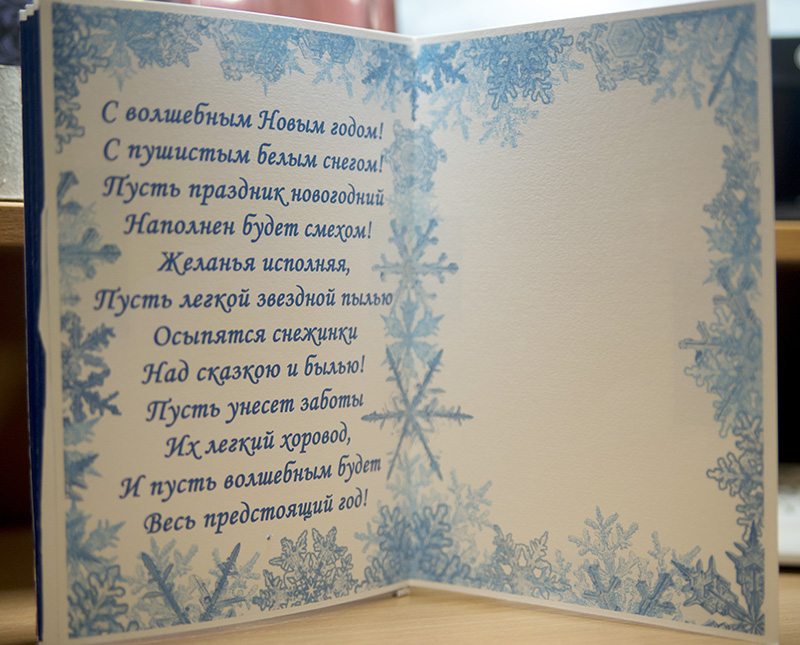 С волшебным Новым годом!
С пушистым белым снегом!
Пусть праздник новогодний
Наполнен будет смехом!
Желанья исполняя,
Пусть легкой звездной пылью
Осыпятся снежинки
Над сказкою и былью!
Пусть унесет заботы
Их легкий хоровод,
И пусть волшебным будет
Весь предстоящий год!